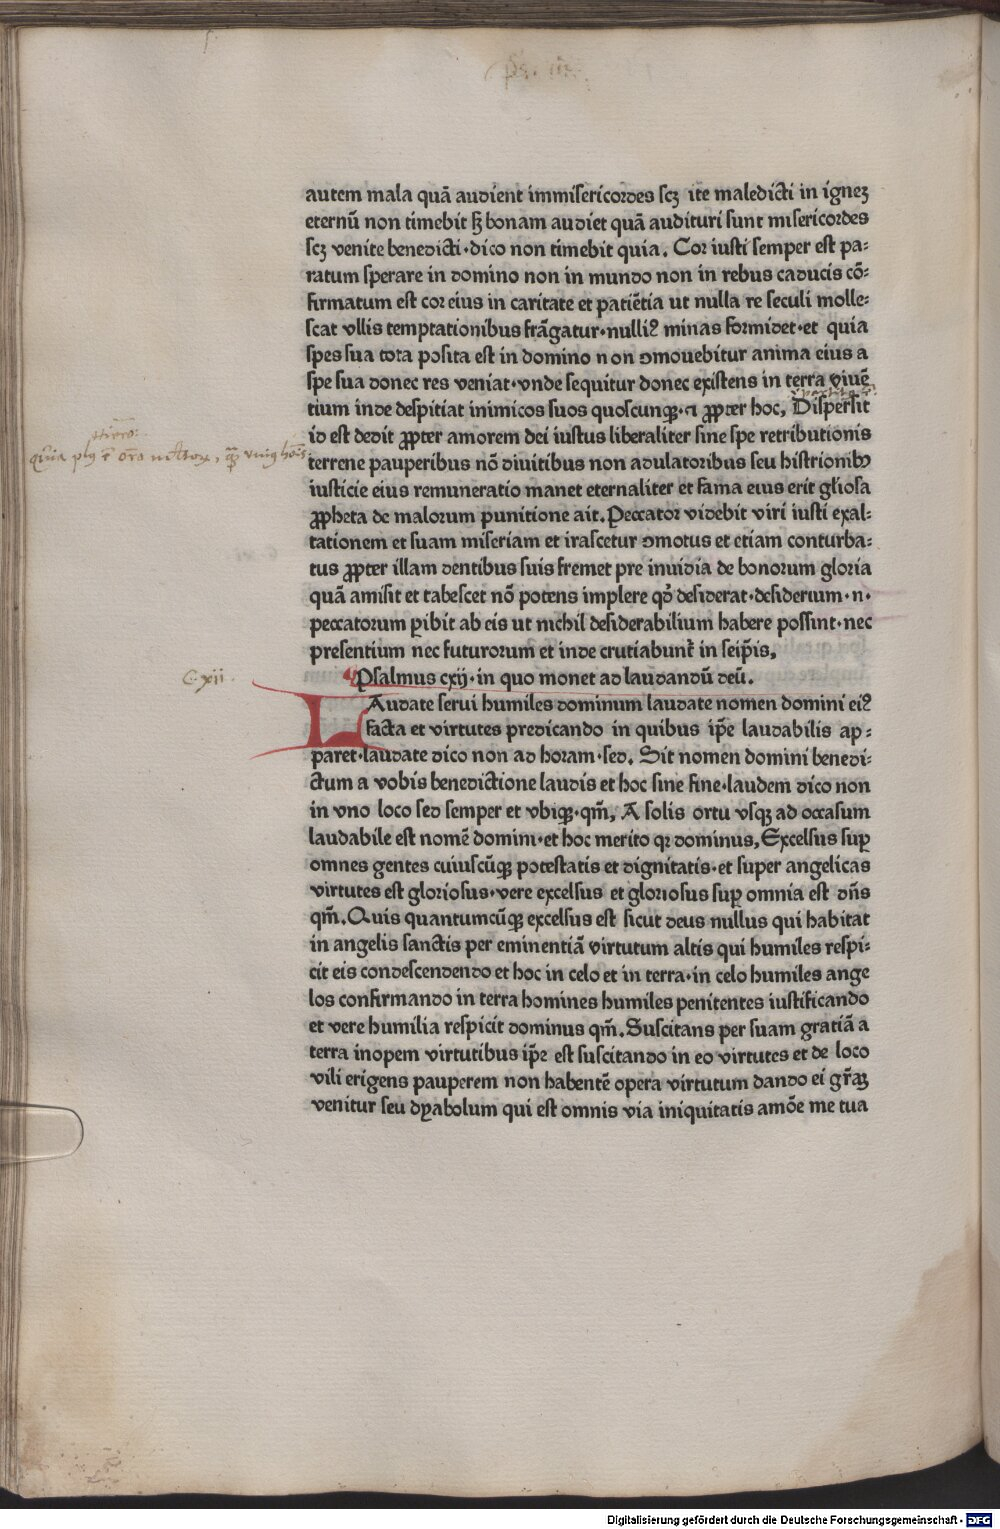 autem mala quā audient immisericordes scꝫ ite maledicti in igneꝫ
eternū non timebit sꝫ bonam audiet quā audituri sunt misericordes
scꝫ venite benedicti·dico non timebit quia. Cor iusti semper est pa-
ratum sperare in domino non in mundo non in rebus caducis cō-
firmatum est cor eius in caritate et patiētia ut nulla re seculi molle-
scat vllis temptationibus frāgatur·nulliꝰ minas formidet·et quia
spes sua tota posita est in domino non ꝯmouebitur anima eius a
spe sua donec res veniat·vnde sequitur donec existens in terra viuē
tium inde despitiat inimicos suos quoscunqꝫ·⁊ ꝓpter hoc, Dispersit
id est dedit ꝓpter amorem dei iustus liberaliter sine spe retributionis
Hiero:
terrene pauperibus nō diuitibus non adulatoribus seu histrionibꝰ
iusticie eius remuneratio manet eternaliter et fama eius erit gl'iosa
ꝓpheta de malorum punitione ait. Peccator videbit viri iusti exal-
tationem et suam miseriam et irascetur ꝯmotus et etiam conturba-
tus ꝓpter illam dentibus suis fremet pre inuidia de bonorum gloria
quā amisit et tabescet nō potens implere qd' desiderat·desiderium·n·
peccatorum ꝑibit ab eis ut nichil desiderabilium habere possint·nec
presentium nec futurorum et inde crutiabunt' in seip̄is,
Cxii.
Psalmus cxij·in quo monet ad laudandū deū.
LAudate serui humiles dominum laudate nomen domini eiꝰ
facta et virtutes predicando in quibus ip̄e laudabilis ap-
paret·laudate dico non ad horam·sed. Sit nomen domini benedi-
ctum a vobis benedictione laudis et hoc sine fine·laudem dico non
in vno loco sed semper et vbiqꝫ·qm̄, A solis ortu vsqꝫ ad occasum
laudabile est nomē domini·et hoc merito qꝛ dominus, Excelsus suꝑ
omnes gentes cuiuscūqꝫ potestatis et dignitatis·et super angelicas
virtutes est gloriosus·vere excelsus et gloriosus suꝑ omnia est dn̄s
qm̄. Quis quantumcūqꝫ excelsus est sicut deus nullus qui habitat
in angelis sanctis per eminentiā virtutum altis qui humiles respi-
cit eis condescendendo et hoc in celo et in terra·in celo humiles ange
los confirmando in terra homines humiles penitentes iustificando
et vere humilia respicit dominus qm̄. Suscitans per suam gratiā a
terra inopem virtutibus ip̄e est suscitando in eo virtutes et de loco
vili erigens pauperem non habentē opera virtutum dando ei gr̄aꝫ
venitur seu dyabolum qui est omnis via iniquitatis amōe me tua
Digitalisierung gefördert durch die Deutsche Forschungsgemeinschaft - DFG